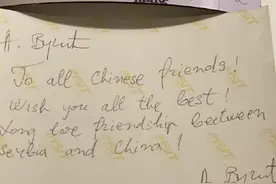 To all Chinese friends!
Wish you all the best!
Long live friendship between
Serbia and China!